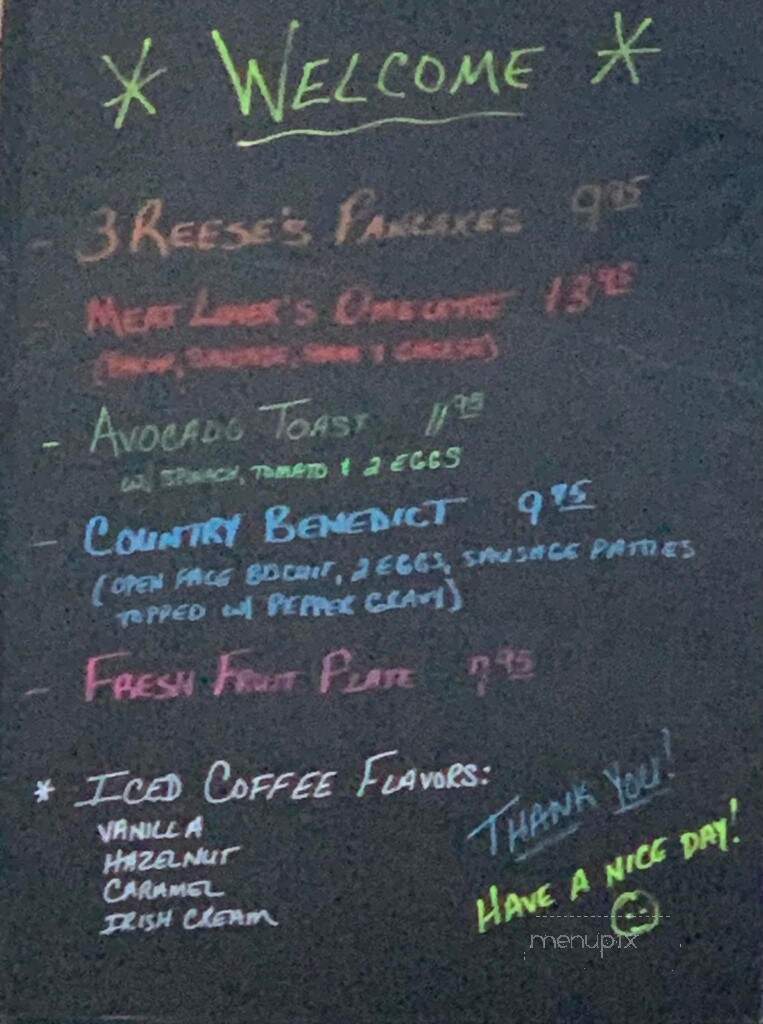 * WELCOME *
- 3 REESE'S PANCAKES 9.95
- MEAT LOVER'S OMELETTE 13.95
(HAM, SAUSAGE, & CHEESE)
- AVOCADO TOAST 11.95
W/ SPINACH, TOMATO & 2 EGGS
- COUNTRY BENEDICT 9.95
(OPEN FACE BISCUIT, 2 EGGS, SAUSAGE PATTIES
TOPPED W/ PEPPER GRAVY)
- FRESH FRUIT PLATE 7.95
* ICED COFFEE FLAVORS:
VANILLA
HAZELNUT
CARAMEL
IRISH CREAM
THANK YOU!
HAVE A NICE DAY!
menupix